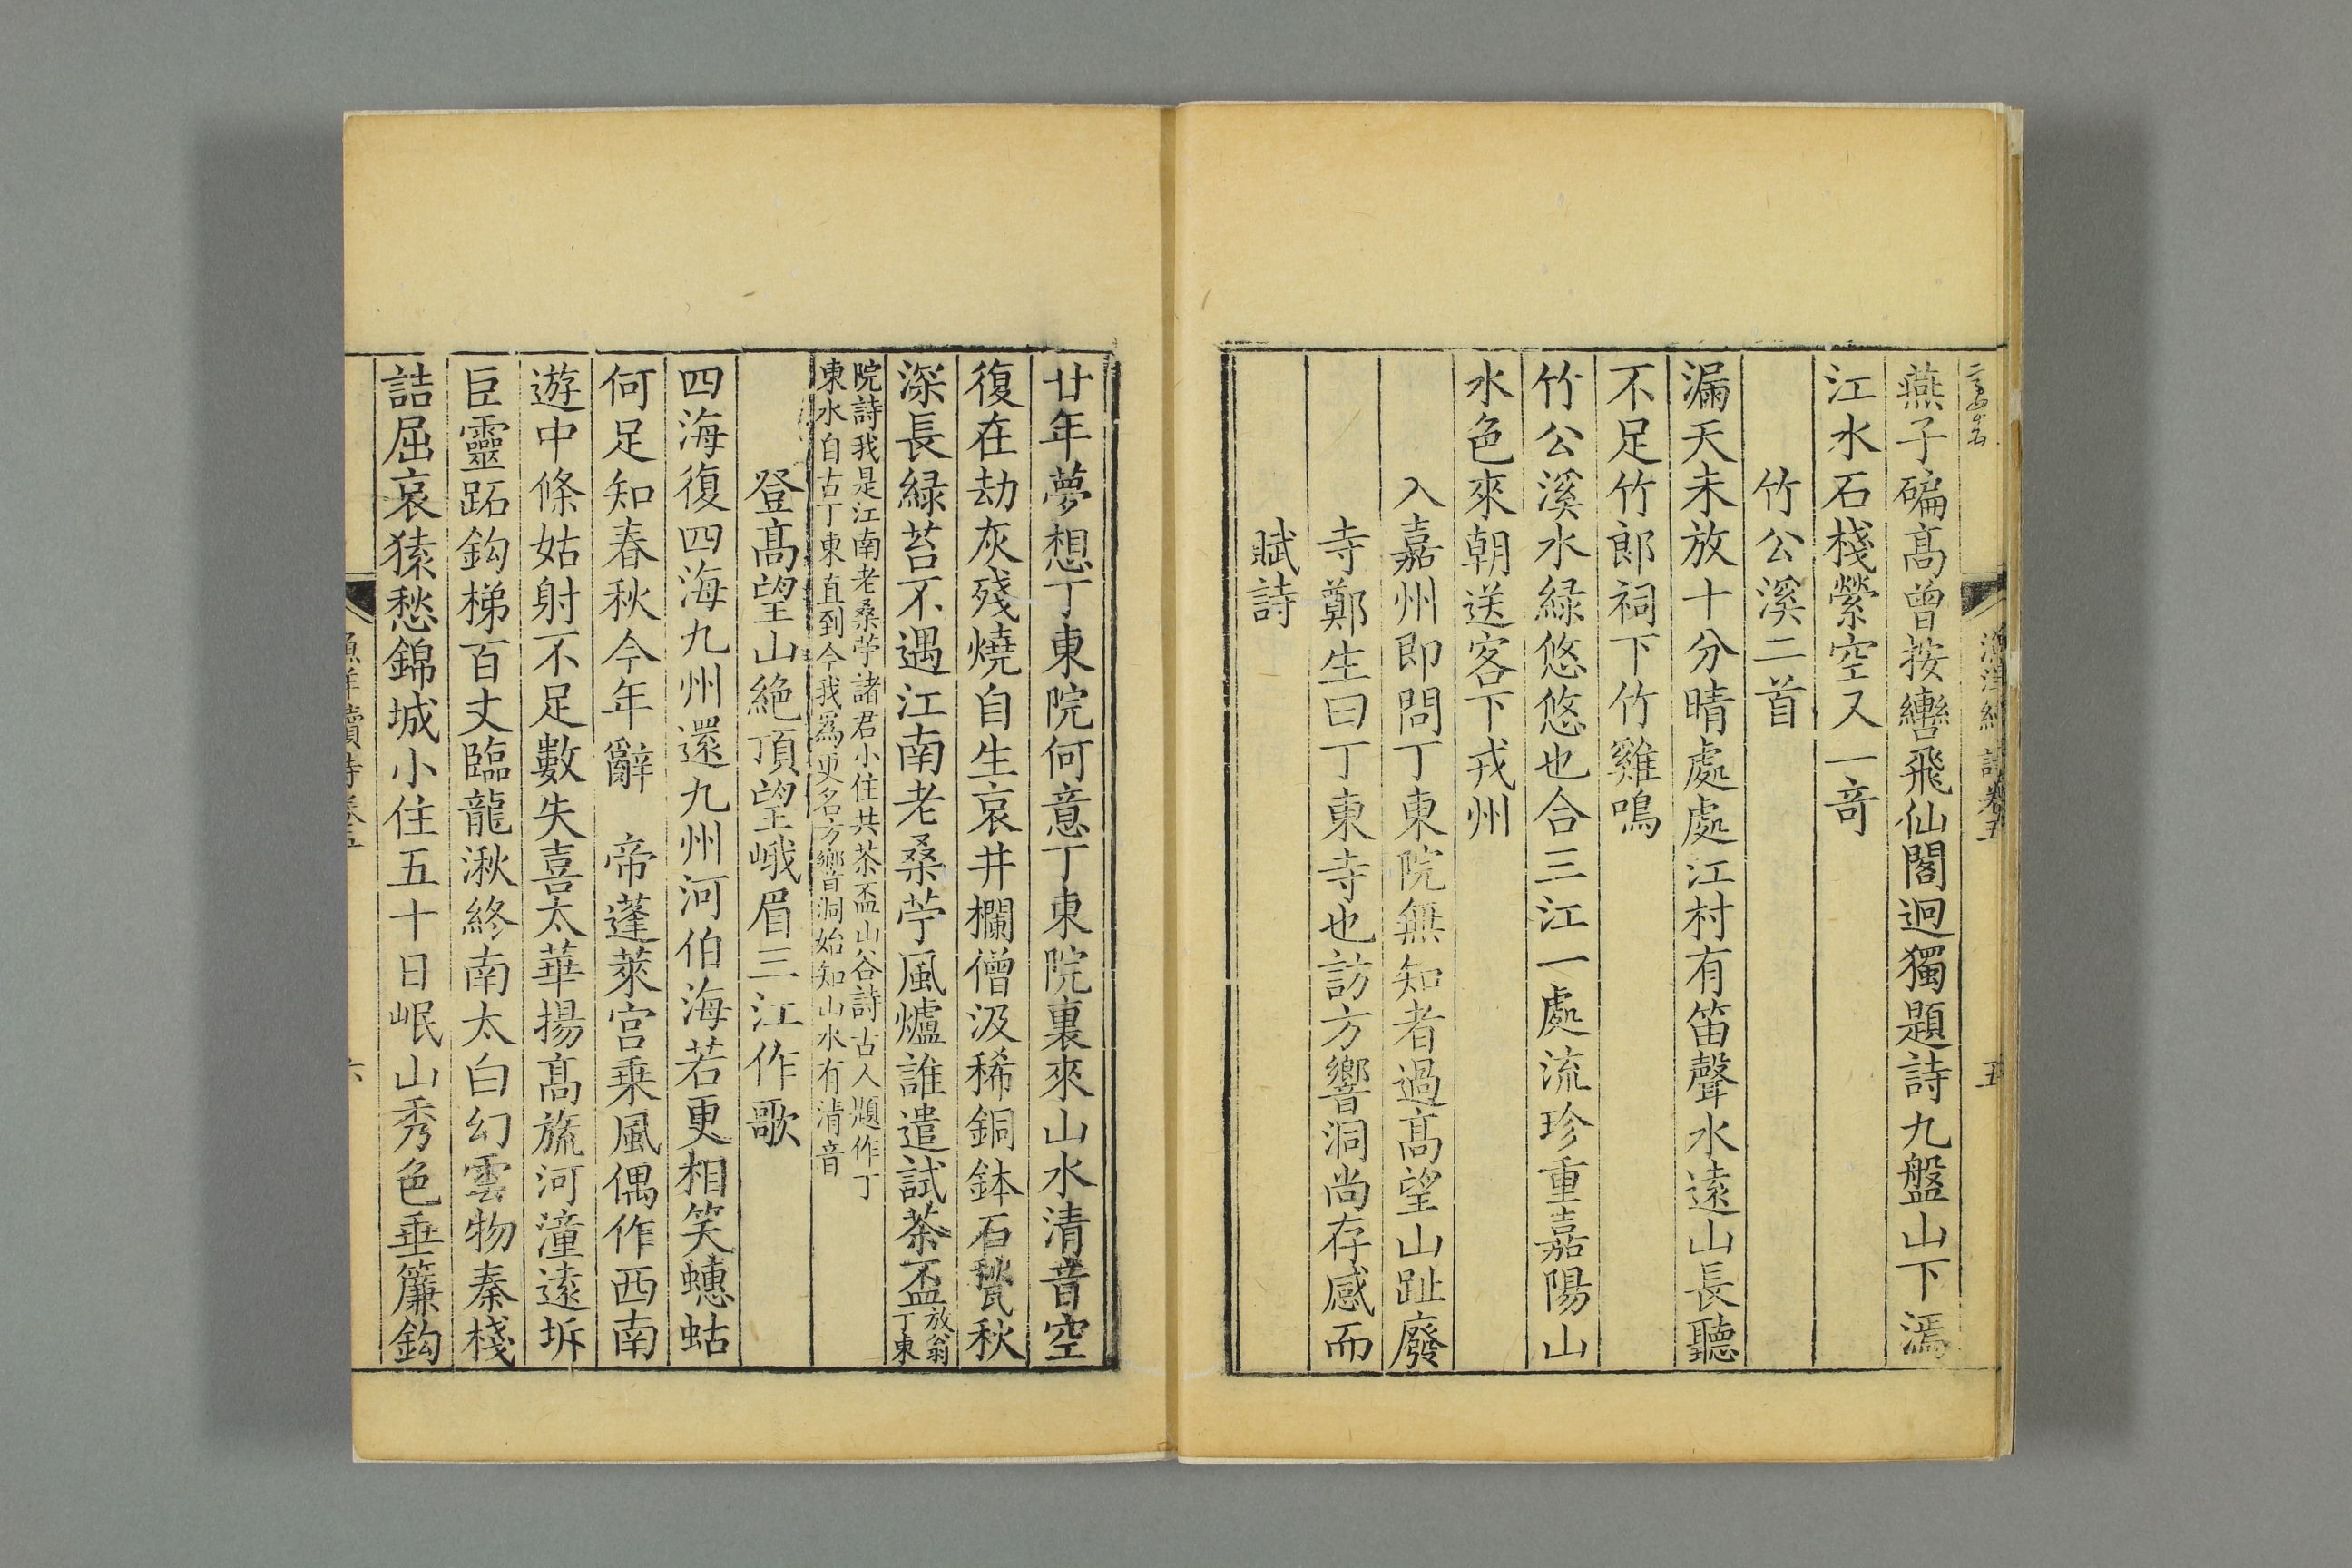 漁洋續詩卷五 五
燕子碥高曾按轡飛仙閣迥獨題詩九盤山下漹
江水石棧縈空又一竒
竹公溪二首
漏天未放十分晴處處江村有笛聲水遠山長聽
不足竹郎祠下竹雞鳴
竹公溪水緑悠悠也合三江一處流珍重嘉陽山
水色來朝送客下戎州
入嘉州即問丁東院無知者過高望山趾廢
寺鄭生曰丁東寺也訪方響洞尚存感而
賦詩
廿年夢想丁東院何意丁東院裏來山水清音空
復在劫灰殘燒自生哀井欄僧汲稀銅鉢石甃秋
深長緑苔不遇江南老桑苧風爐誰遣試茶盃放翁丁東
院詩我是江南老桑苧諸君小住共茶盃山谷詩古人題作丁
東水自古丁東直到今我爲更名方響洞始知山水有清音
登高望山絶頂望峨眉三江作歌
四海復四海九州還九州河伯海若更相笑蟪蛄
何足知春秋今年辭 帝蓬萊宮乗風偶作西南
遊中條姑射不足數失喜太華揚高旒河潼遠坼
巨靈跖鈎梯百丈臨龍湫終南太白幻雲物秦棧
詰屈哀猿愁錦城小住五十日岷山秀色垂簾鈎
漁洋續詩卷五 六